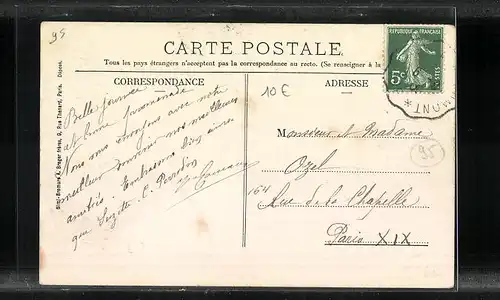 95
CARTE POSTALE.
Tous les pays étrangers n'acceptent pas la correspondance au recto. (Se renseigner à la
CORRESPONDANCE
ADRESSE
RÉPUBLIQUE FRANÇAISE
5c
POSTES
MUNT *
10 €
Belle journée
et bonne promenade
Nous vous envoyons avec notre
meilleur souvenir nos meilleures
amitiés. Embrassons bien
que Suzette. C.
Monsieur et Madame
Ozel
164
Rue de la Chapelle
Paris XIX
95
Rue Thénard, Paris. Déposé.